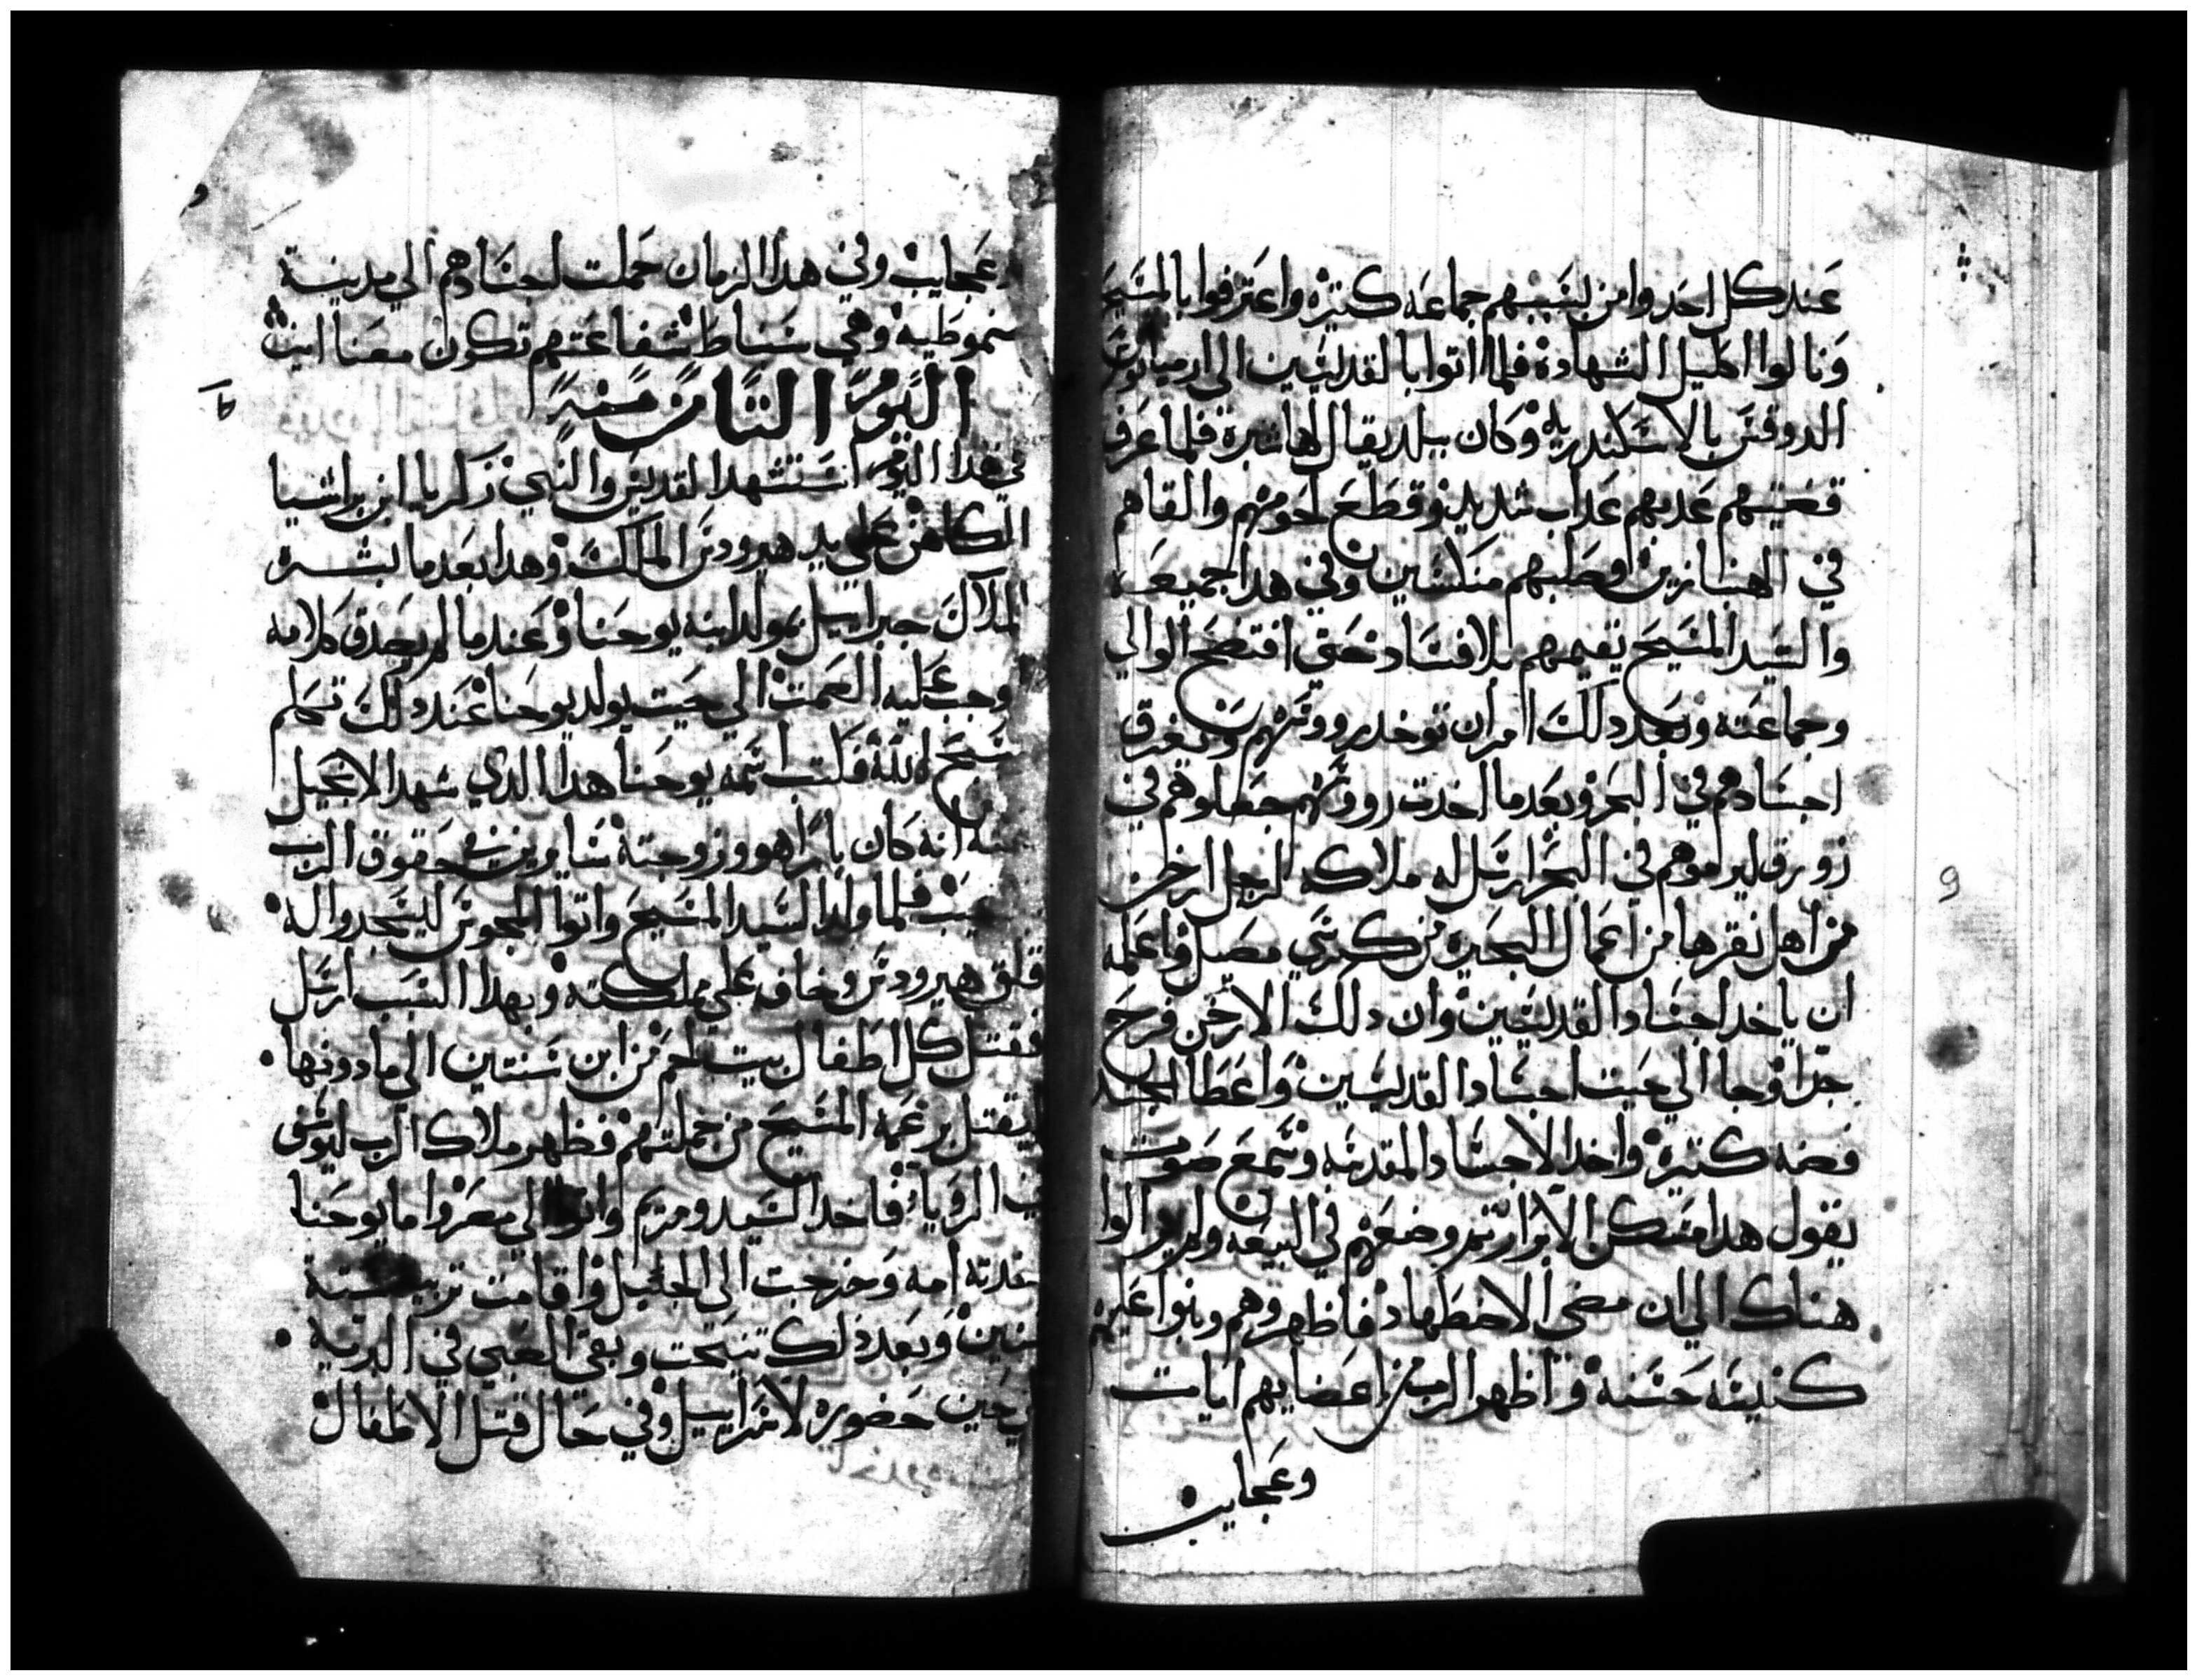 عند كل احد وامن بسببهم جماعه كتيره واعترفوا بالمسيح
ونالوا اكليل الشهادة فلما اتوا بالقديسين الي ارميانوس
الدوقس بالاسكندريه وكان ببلد يقال لها شبرة فلما عرف
قصتهم عدبهم عداب شديد وقطع لحومهم والقاهم
في الهنبازين وصلبهم منكسين وفي هدا جميعه
والسيد المسيح يقيمهم بلا فساد حتي افتضح الوالي
وجماعته وبعد دلك امر ان توخد رووسهم وتغرق
اجسادهم في البحر وبعد ما اخدت رووسهم جعلوهم في
زورق ليرموهم في البحر ارسل له ملاكه لرجل ارخن
من اهل نقرها من اعمال البحيره من كرسي مصيل واعلمه
ان ياخد اجساد القديسين وان دلك الارخن فرح
جدا وجا الي حيت اجساد القديسين واعطا الجند
فضه كتيرة واخد الاجساد المقدسه وسمع صوت
يقول هدا مسكن الابرار تم وضعهم في البيعه ولم يزالوا
هناك الي ان مضي الاضطهاد فاظهروهم وبنوا عليهم
كنيسه حسنه واظهر الرب من اعضايهم ايات
وعجايب
9
وعجايب وفي هدا الزمان حملت اجسادهم الي مدينة
سموطيه وهي سنباط شفاعتهم تكون معنا امين
اليوم التامن منه
في هدا اليوم استشهد القديس والنبي زكريا ابن براشيا
الكاهن علي يد هيرودس الملك وهدا بعد ما بشره
الملاك جبراييل بمولد ابنه يوحنا وعندما لم يصدق كلامه
وجب عليه الصمت الي حيت يولد يوحنا عند دلك تكلم
سبح الله فكتب اسمه يوحنا هدا الدي شهد الانجيل
عنه انه كان بارا هو وزوجتة سايرين في حقوق الرب
عيب فلما ولد السيد المسيح واتوا المجوس ليسجدوا له
قلق هيرودس وخاف علي مملكته وبهدا السبب ارسل
فقتل كل اطفال بيت لحم من ابن سنتين الي ما دونها
ليقتل بزعمه المسيح من جملتهم فظهر ملاك الرب ليوسف
في الرويا فاخد السيد ومريم واتوا الي مصر واما يوحنا
اخدته امه وخرجت الي الجليل واقامت تربيه ستة
سنين وبعد ذلك تنيحت وبقي الصبي في البرية
الي حين حضوره لاسراييل وفي حال قتل الاطفال